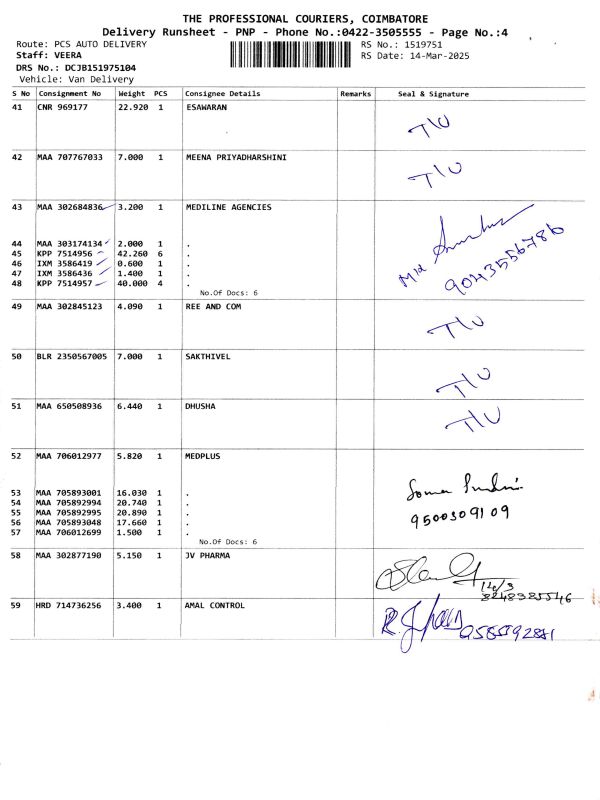 THE PROFESSIONAL COURIERS, COIMBATORE
Delivery Runsheet - PNP - Phone No.:0422-3505555 - Page No.:4
Route: PCS AUTO DELIVERY RS No.: 1519751
Staff: VEERA RS Date: 14-Mar-2025
DRS No.: DCJB151975104
Vehicle: Van Delivery
S No Consignment No Weight PCS Consignee Details Remarks Seal & Signature
41 CNR 969177 22.920 1 ESAWARAN
T/U
42 MAA 707767033 7.000 1 MEENA PRIYADHARSHINI
T/U
43 MAA 302684836 3.200 1 MEDILINE AGENCIES
44 MAA 303174134 2.000 1 .
45 KPP 7514956 42.260 6 .
46 IXM 3586419 0.600 1 .
47 IXM 3586436 1.400 1 .
48 KPP 7514957 40.000 4 .
9043556786
No.Of Docs: 6
49 MAA 302845123 4.090 1 REE AND COM
T/U
50 BLR 2350567005 7.000 1 SAKTHIVEL
T/U
51 MAA 650508936 6.440 1 DHUSHA
T/U
52 MAA 706012977 5.820 1 MEDPLUS
53 MAA 705893001 16.030 1 .
54 MAA 705892994 20.740 1 .
55 MAA 705892995 20.890 1 .
56 MAA 705893048 17.660 1 .
57 MAA 706012699 1.500 1 .
9500309109
No.Of Docs: 6
58 MAA 302877190 5.150 1 JV PHARMA
14/3
59 HRD 714736256 3.400 1 AMAL CONTROL